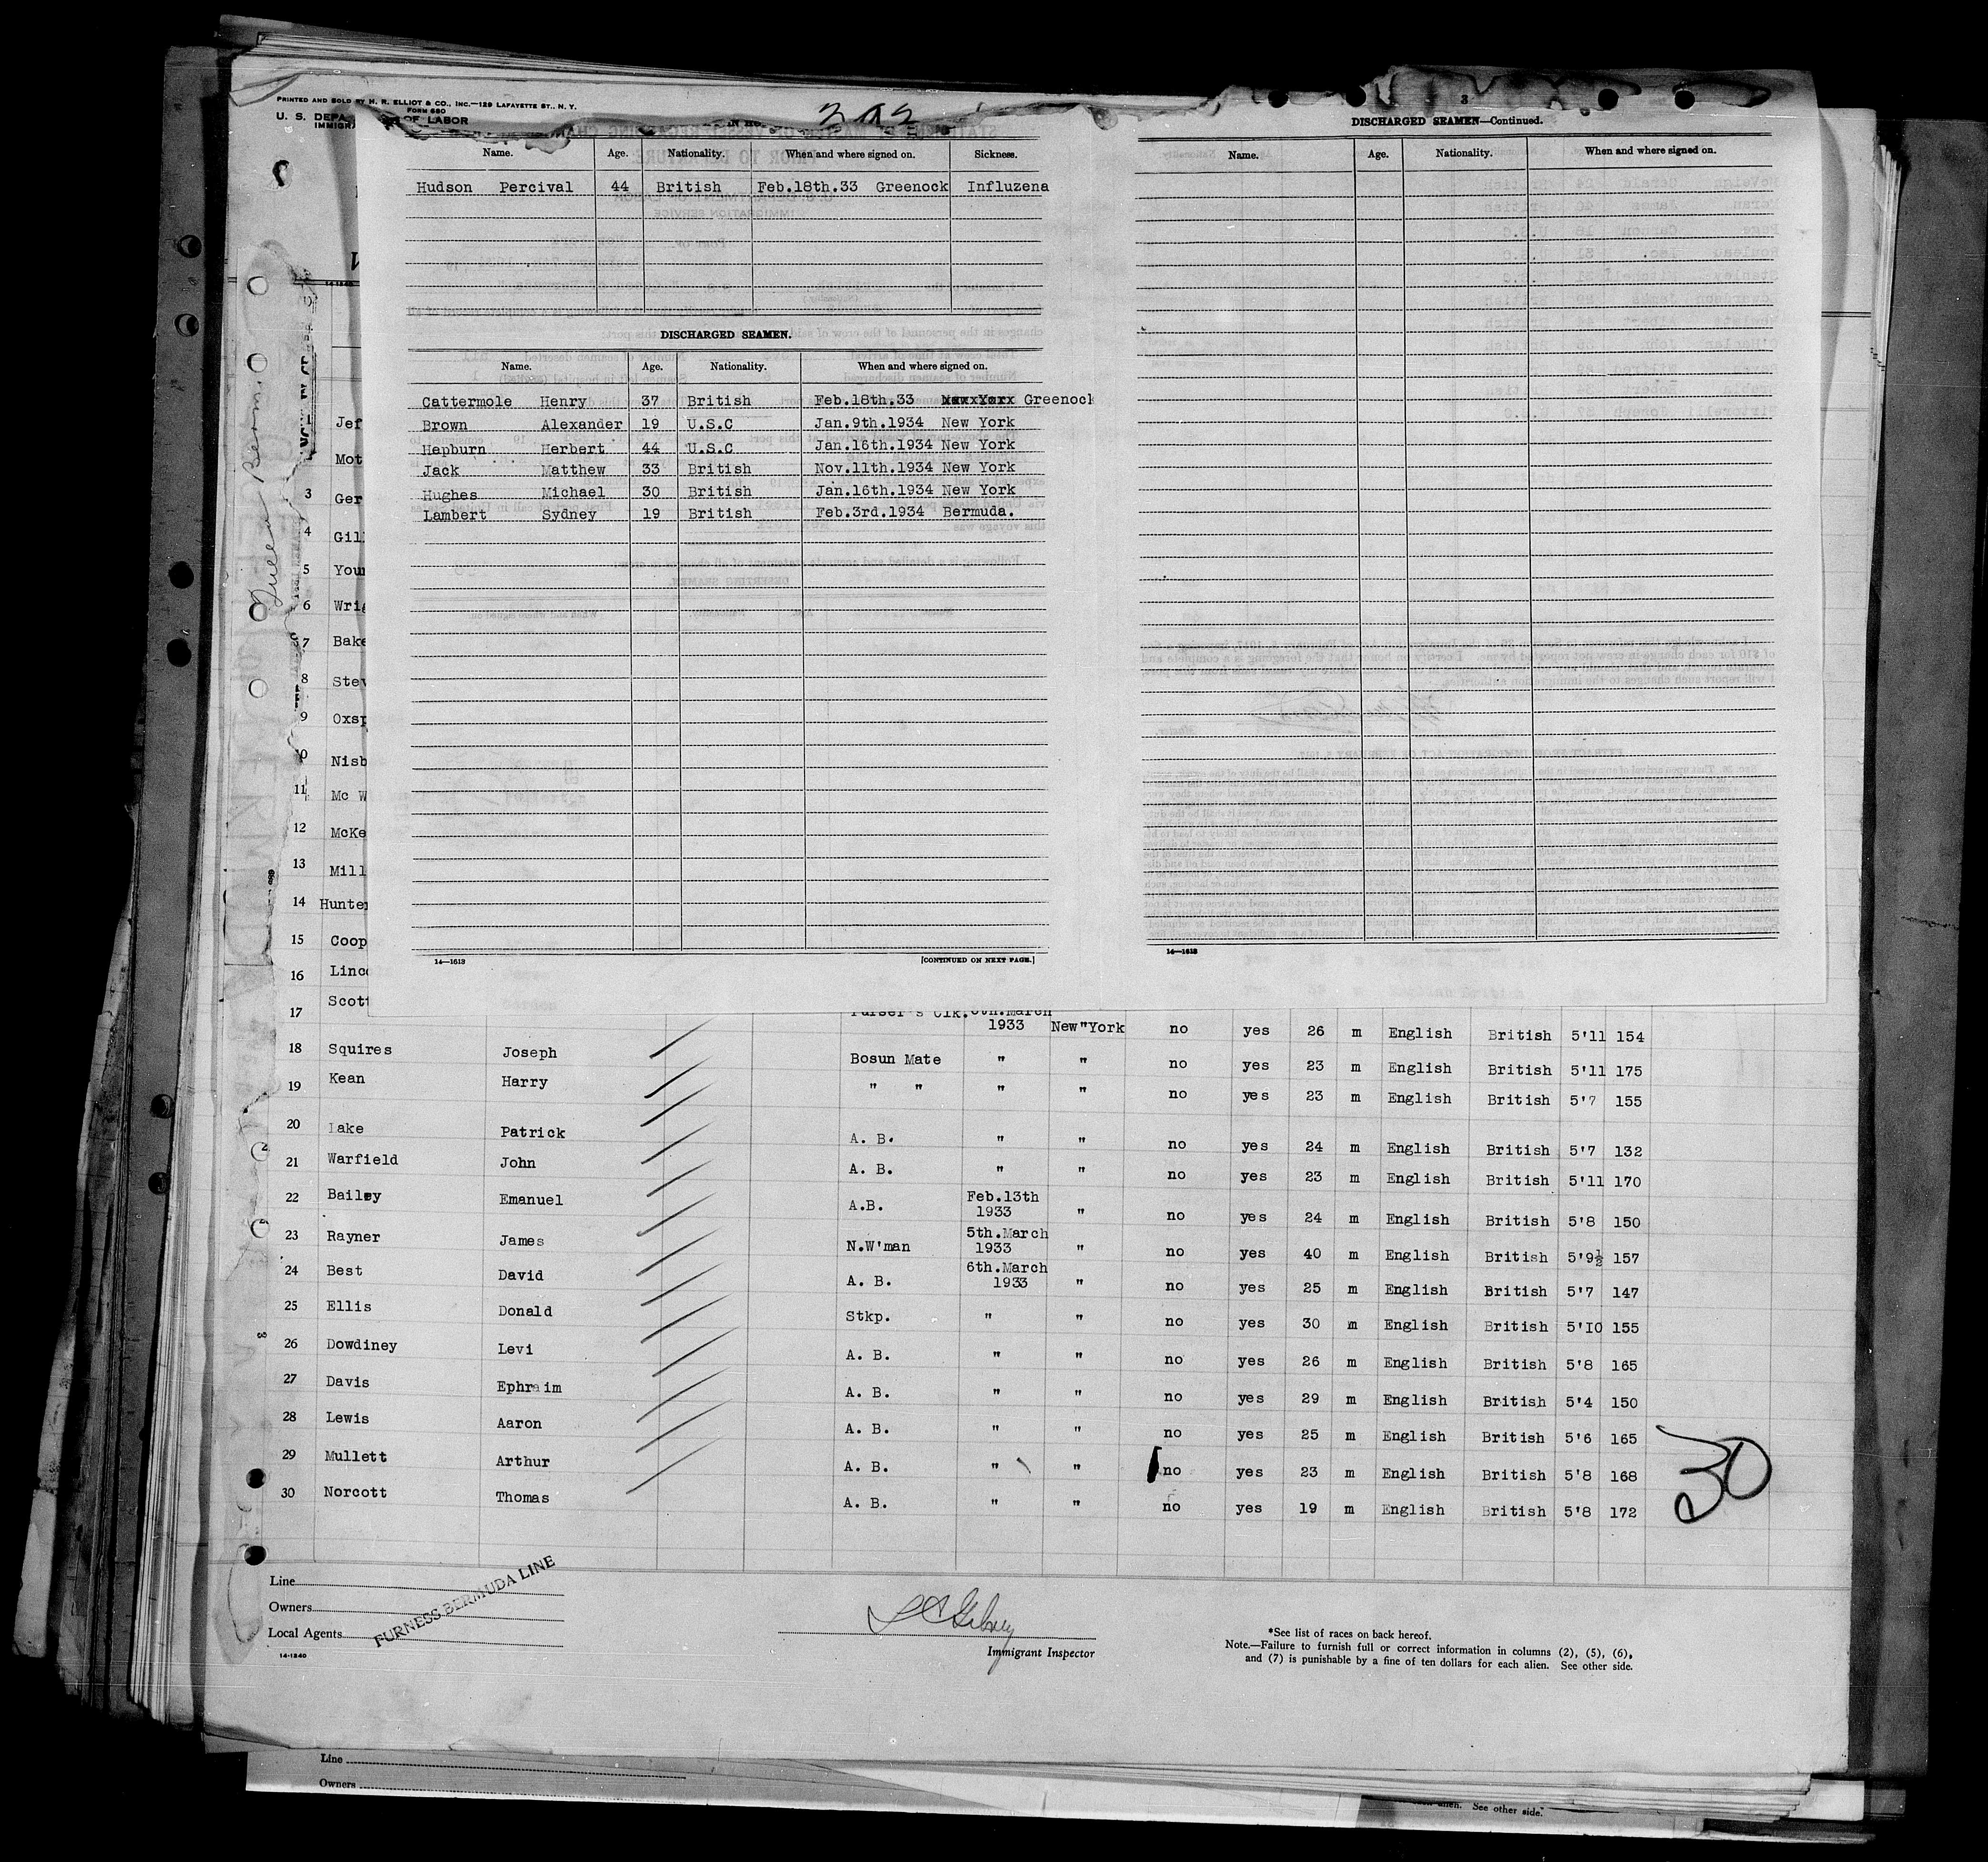 PRINTED AND SOLD BY H. R. ELLIOT & CO., INC.—129 LAFAYETTE ST., N. Y.
FORM 680
U. S. DEPA OF LABOR
IMMIGRA
202
Name. Age. Nationality. When and where signed on. Sickness.
Hudson Percival 44 British Feb.18th.33 Greenock Influzena
DISCHARGED SEAMEN.
Name. Age. Nationality. When and where signed on.
Cattermole Henry 37 British Feb.18th.33 Greenock
Brown Alexander 19 U.S.C Jan.9th.1934 New York
Hepburn Herbert 44 U.S.C Jan.16th.1934 New York
Jack Matthew 33 British Nov.11th.1934 New York
Hughes Michael 30 British Jan.16th.1934 New York
Lambert Sydney 19 British Feb.3rd.1934 Bermuda.
14—1613 [CONTINUED ON NEXT PAGE.]
3
DISCHARGED SEAMEN—Continued.
Name. Age. Nationality. When and where signed on.
14—1613
Jef
Mot
3 Ger
4 Gil
5 You
6 Wri
7 Bake
8 Stev
9 Oxsp
10 Nisb
11 Mc W
12 McKe
13 Mill
14 Hunte
15 Coop
16 Linc
17 Scott Purser's Clk. 6th.March 1933 New "York no yes 26 m English British 5'11 154
18 Squires Joseph Bosun Mate " " no yes 23 m English British 5'11 175
19 Kean Harry " " " " no yes 23 m English British 5'7 155
20 Lake Patrick A. B. " " no yes 24 m English British 5'7 132
21 Warfield John A. B. " " no yes 23 m English British 5'11 170
22 Bailey Emanuel A.B. Feb.13th 1933 " no yes 24 m English British 5'8 150
23 Rayner James N.W'man 5th.March 1933 " no yes 40 m English British 5'9½ 157
24 Best David A. B. 6th.March 1933 " no yes 25 m English British 5'7 147
25 Ellis Donald Stkp. " " no yes 30 m English British 5'10 155
26 Dowdiney Levi A. B. " " no yes 26 m English British 5'8 165
27 Davis Ephraim A. B. " " no yes 29 m English British 5'4 150
28 Lewis Aaron A. B. " " no yes 25 m English British 5'6 165
29 Mullett Arthur A. B. " " no yes 23 m English British 5'8 168
30 Norcott Thomas A. B. " " no yes 19 m English British 5'8 172
30
Line
Owners
Local Agents
FURNESS BERMUDA LINE
14-1240
Immigrant Inspector
*See list of races on back hereof.
Note.—Failure to furnish full or correct information in columns (2), (5), (6),
and (7) is punishable by a fine of ten dollars for each alien. See other side.
Line
Owners
alien. See other side.